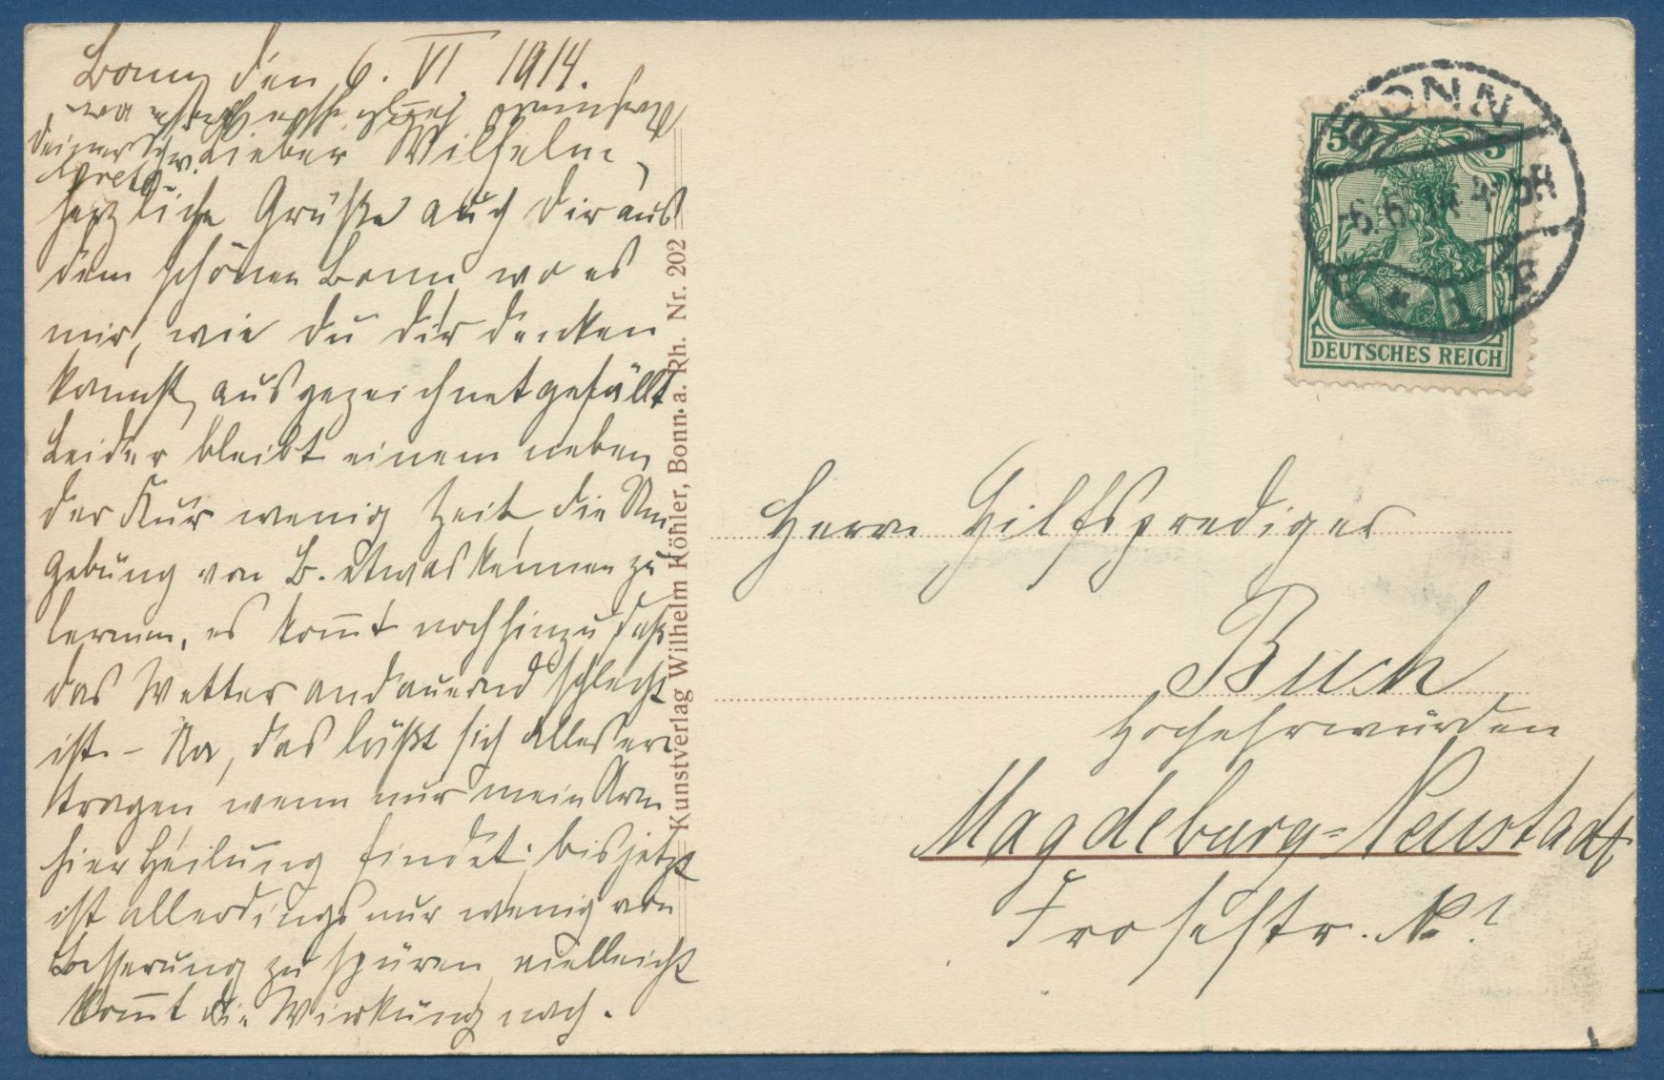 Bonn den 6. VI 1914.
Lieber Wilhelm,
herzliche Grüße auch dir aus
dem schönen Bonn wo es
mir, wie du dir denken
kannst, ausgezeichnet gefällt
Leider bleibt einem neben
der Kur wenig Zeit die Um
gebung von B. etwas kennen zu
lernen, es kom̄t noch hinzu daß
das Wetter andauernd schlecht
ist. - Na, das läßt sich alles er
tragen wenn nur mein Arm
hier Heilung findet; bis jetzt
ist allerdings nur wenig von
Besserung zu spüren, vielleicht
kom̄t die Wirkung noch.
deiner
Gretel
Kunstverlag Wilhelm Köhler, Bonn a. Rh. Nr. 202
BONN
-6.6.14.4-5N
* 1 F
5 5
DEUTSCHES REICH
Herrn Hilfsprediger
Buch,
Hochehrwürden
Magdeburg=Neustadt
Frohsestr. No